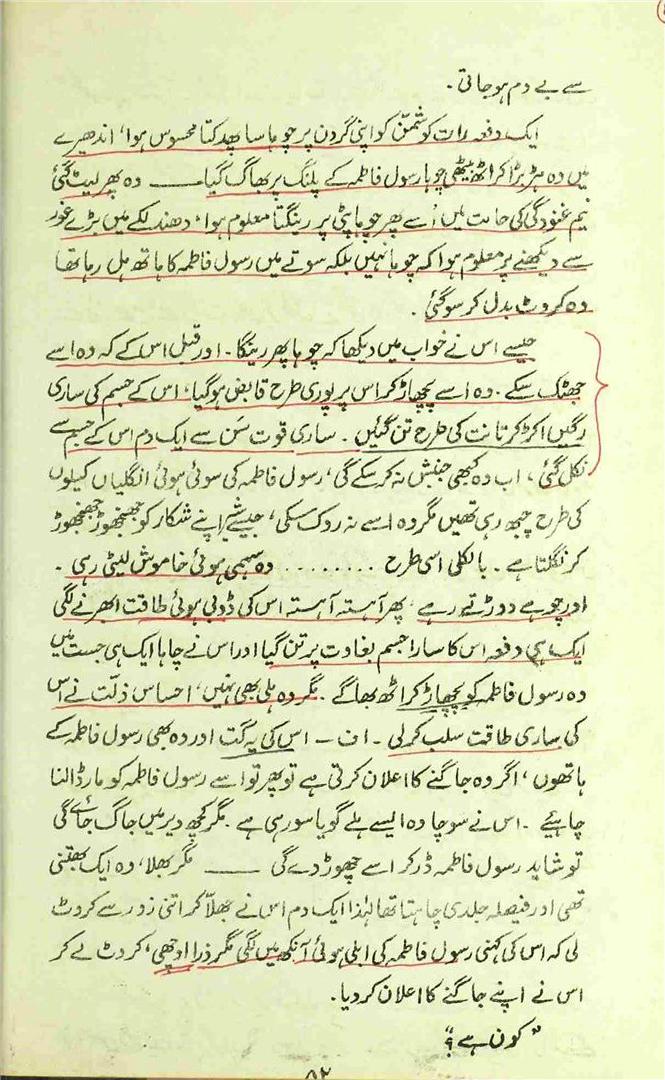 سے بے دم ہو جاتی ۔
ایک دفعہ رات کو شمّن کو اپنی گردن پر چوہا سا پھدکتا محسوس ہوا، اندھیرے
میں وہ ہڑبڑا کر اٹھ بیٹھی چوہا رسول فاطمہ کے پلنگ پر بھاگ گیا —— وہ پھر لیٹ گئی
نیم غنودگی کی حالت میں اُسے پھر چوہا پٹی پر رینگتا معلوم ہوا، دھندلکے میں بڑے غور
سے دیکھنے پر معلوم ہوا کہ چوہا نہیں بلکہ سوتے میں رسول فاطمہ کا ہاتھ ہل رہا تھا
وہ کروٹ بدل کر سو گئی ۔
جیسے اس نے خواب میں دیکھا کہ چوہا پھر رینگا ۔ اور قبل اس کے کہ وہ اسے
جھٹک سکے ۔ وہ اسے پچھاڑ کر اس پر پوری طرح قابض ہو گیا، اس کے جسم کی ساری
رگیں اکڑ کر تانت کی طرح تن گئیں ۔ ساری قوت سَن سے ایک دم اس کے جسم سے
نکل گئی، اب وہ کبھی جنبش نہ کر سکے گی، رسول فاطمہ کی سوئی ہوئی انگلیاں کیلوں
کی طرح چبھ رہی تھیں مگر وہ اسے نہ روک سکی، جیسے شیر اپنے شکار کو جھنجھوڑ جھنجھوڑ
کر نگلتا ہے ۔ بالکل اسی طرح ........ وہ سہمی ہوئی خاموش لیٹی رہی ۔
اور چوہے دوڑتے رہے، پھر آہستہ آہستہ اس کی ڈوبی ہوئی طاقت ابھرنے لگی
ایک ہی دفعہ اس کا سارا جسم بغاوت پر تن گیا اور اس نے چاہا ایک ہی جست میں
وہ رسول فاطمہ کو پچھاڑ کر اٹھ بھاگے ۔ مگر وہ ہلی بھی نہیں، احساس ذلّت نے اس
کی ساری طاقت سلب کر لی ۔ اف ۔ اس کی یہ گت اور وہ بھی رسول فاطمہ کے
ہاتھوں، اگر وہ جاگنے کا اعلان کرتی ہے تو پھر تو اسے رسول فاطمہ کو مار ڈالنا
چاہیئے ۔ اس نے سوچا وہ ایسے ہلے گویا سو رہی ہے ۔ مگر کچھ دیر میں جاگ جائے گی
تو شاید رسول فاطمہ ڈر کر اسے چھوڑ دے گی —— مگر بھلا، وہ ایک بھتنی
تھی اور فیصلہ جلدی چاہتا تھا لہٰذا ایک دم اس نے بھلّا کر اتنی زور سے کروٹ
لی کہ اس کی کہنی رسول فاطمہ کی ابلی ہوئی آنکھ میں لگی مگر ذرا اوچھی، کروٹ لے کر
اس نے اپنے جاگنے کا اعلان کر دیا ۔
”کون ہے؟“
۸۲